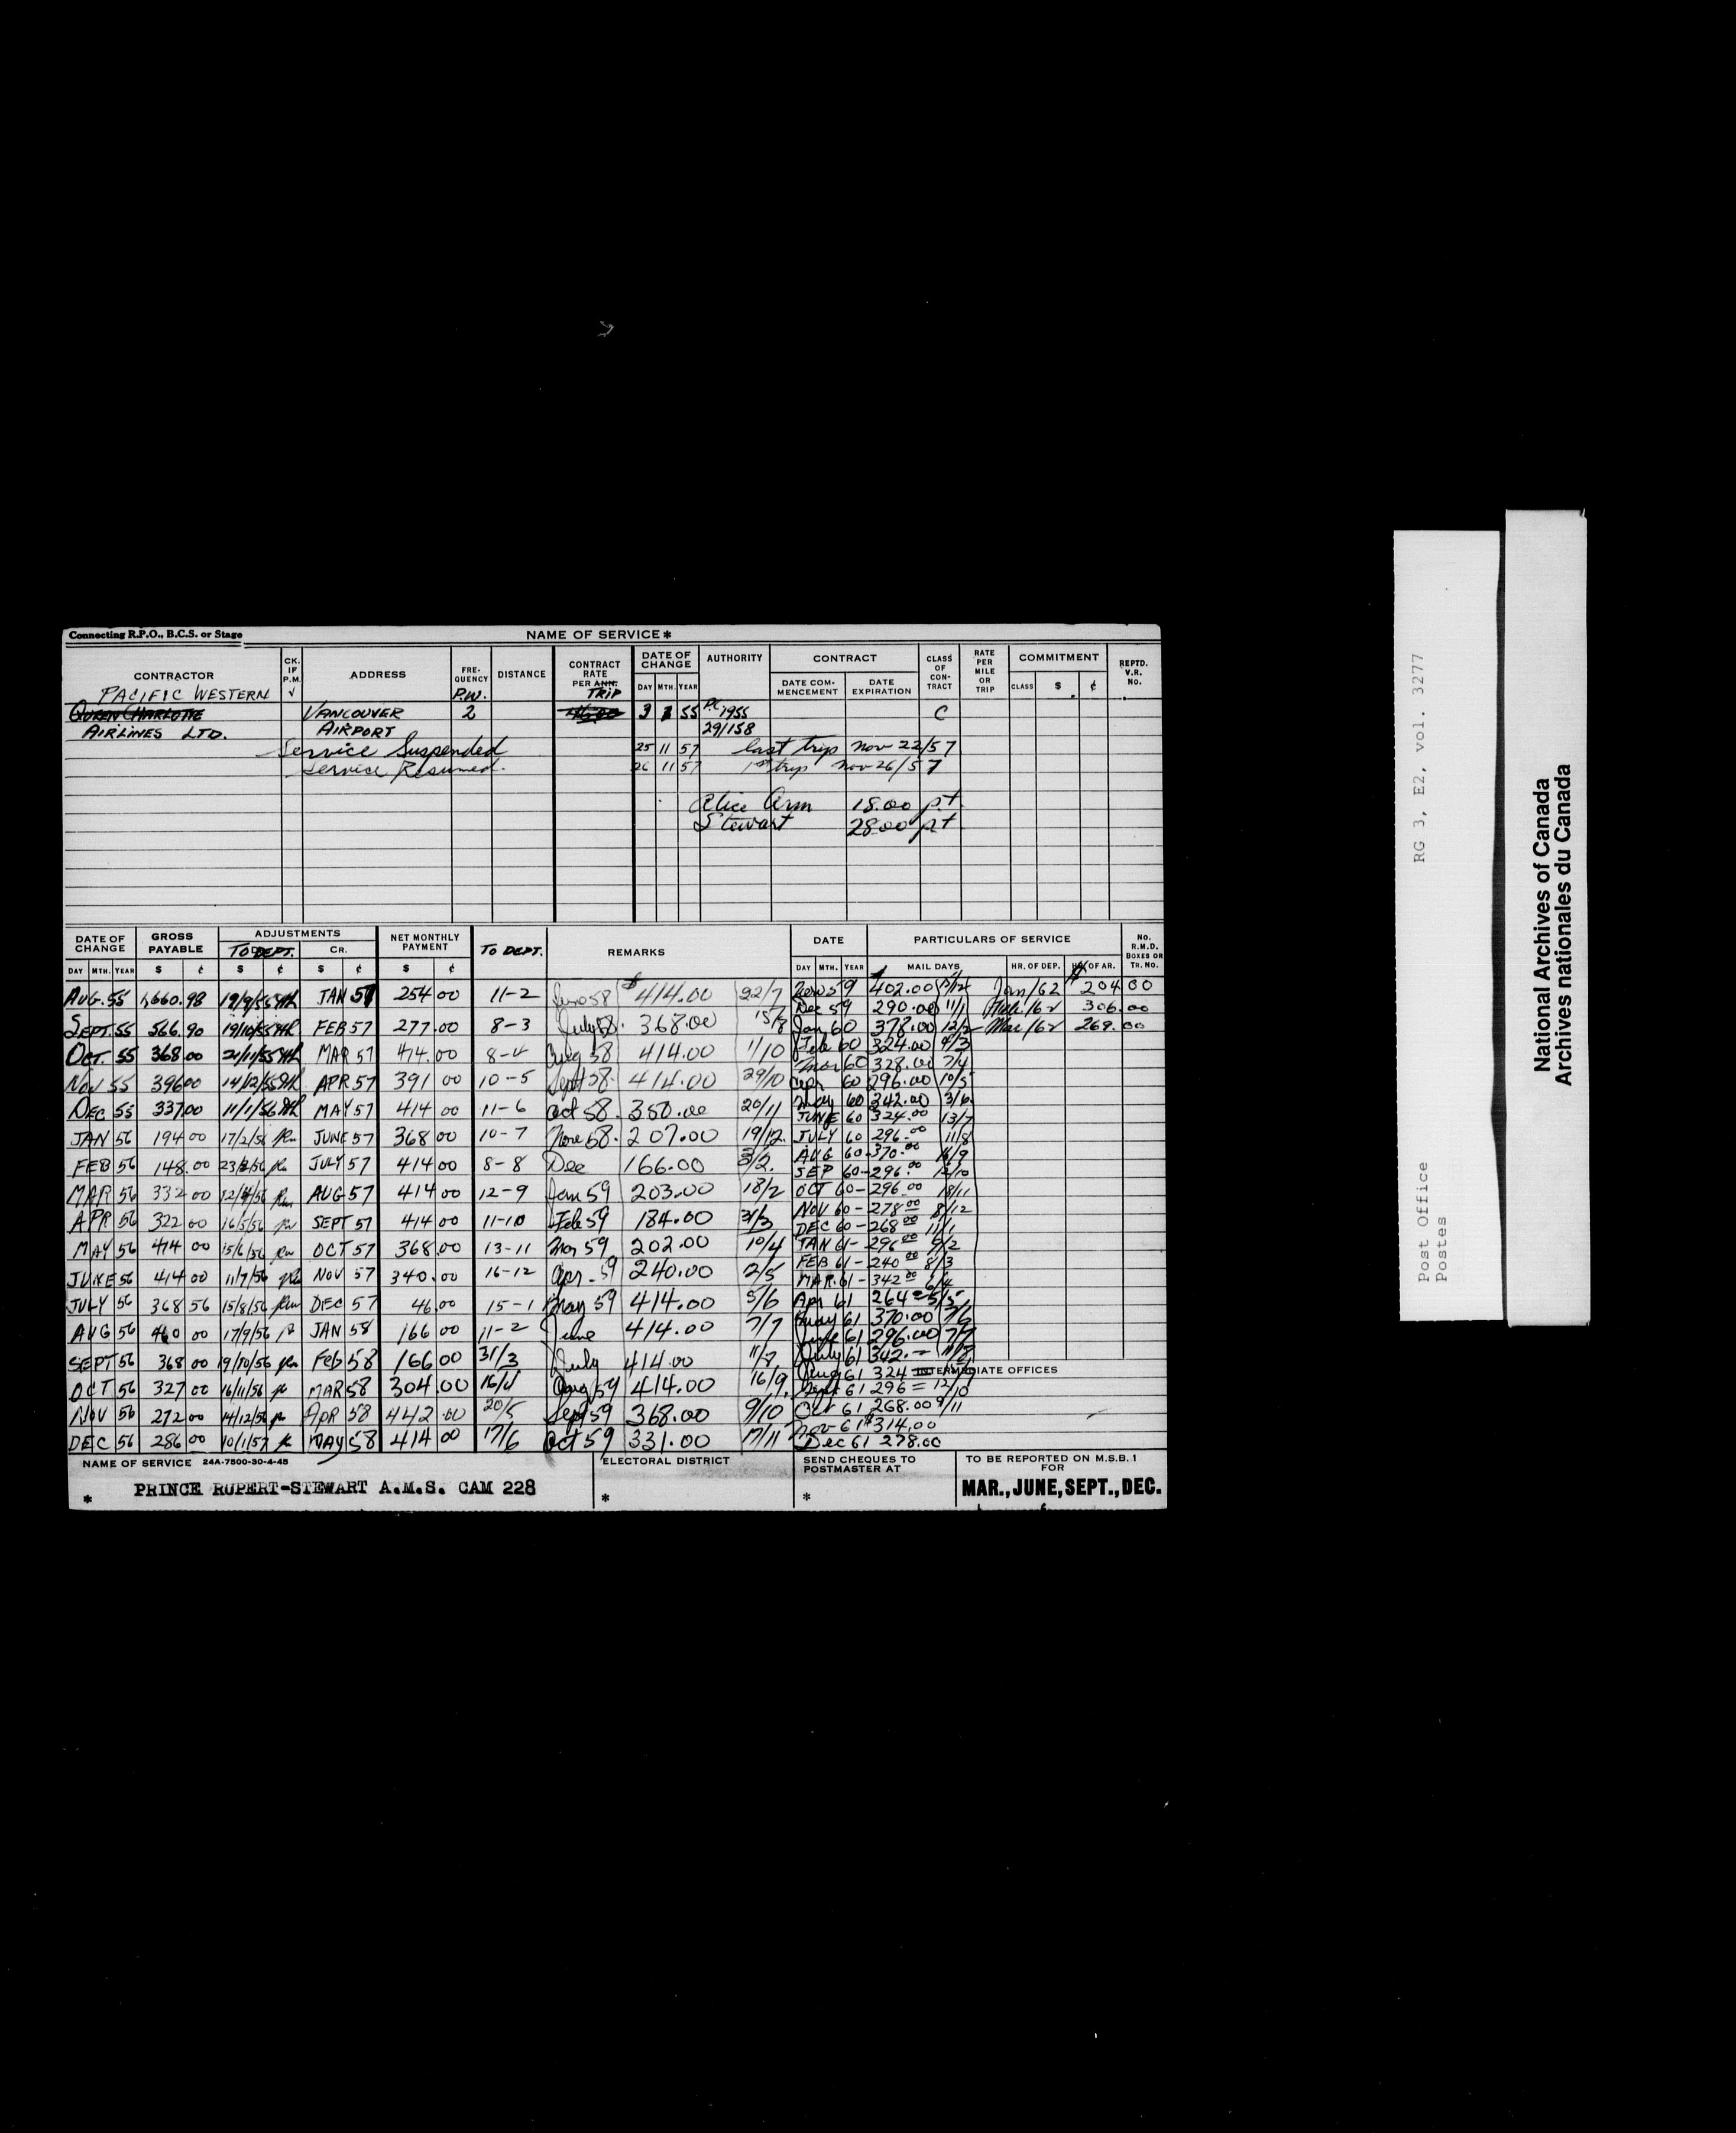 Connecting R.P.O., B.C.S. or Stage
NAME OF SERVICE *
CONTRACTOR CK. IF P.M. √ ADDRESS FRE-QUENCY P.W. DISTANCE CONTRACT RATE PER ANN. TRIP DATE OF CHANGE DAY MTH. YEAR AUTHORITY CONTRACT DATE COM-MENCEMENT DATE EXPIRATION CLASS OF CON-TRACT RATE PER MILE OR TRIP COMMITMENT CLASS $ ¢ REPTD. V.R. No.
PACIFIC WESTERN
QUEEN CHARLOTTE VANCOUVER 2 46.00 3 55 P.C. 1955 C
AIRLINES LTD. AIRPORT 29/158
Service Suspended 25 11 57 last trip Nov 22/57
Service Resumed. 26 11 57 1st trip Nov 26/57
Alice Arm 18.00 p.t.
Stewart 28.00 p.t
DATE OF CHANGE DAY MTH. YEAR GROSS PAYABLE $ ¢ ADJUSTMENTS TO DEPT. $ ¢ CR. $ ¢ NET MONTHLY PAYMENT $ ¢ TO DEPT. REMARKS DATE DAY MTH. YEAR PARTICULARS OF SERVICE MAIL DAYS HR. OF DEP. HR. OF AR. No. R.M.D. BOXES OR TR. No.
AUG. 55 1,660.98 19/9/55 JAN 57 254 00 11-2 June 58 $414.00 22/7
SEPT. 55 566.90 19/10/55 FEB 57 277.00 8-3 July 58. 368.00 15/8
OCT. 55 368.00 21/11/55 MAR 57 414.00 8-4 Aug 58 414.00 1/10
NOV 55 396 00 14/12/55 APR 57 391 00 10-5 Sept 58. 414.00 29/10
DEC 55 337.00 11/1/56 MAY 57 414 00 11-6 Oct 58. 350.00 20/11
JAN 56 194 00 17/2/56 JUNE 57 368 00 10-7 Nov 58. 207.00 19/12
FEB 56 148.00 23/2/56 JULY 57 414 00 8-8 Dec 166.00
MAR 56 332 00 12/4/56 AUG 57 414 00 12-9 Jan 59 203.00 18/2
APR 56 322 00 16/5/56 SEPT 57 414 00 11-10 Feb 59 184.00 31/3
MAY 56 414 00 15/6/56 OCT 57 368.00 13-11 Mar 59 202.00 10/4
JUNE 56 414 00 11/7/56 NOV 57 340.00 16-12 Apr - 59 240.00 2/5
JULY 56 368 56 15/8/56 DEC 57 46.00 15-1 May 59 414.00 5/6
AUG 56 460 00 17/9/56 JAN 58 166 00 11-2 June 414.00 7/7
SEPT 56 368 00 19/10/56 Feb 58 166 00 31/3 July 414.00 11/8
OCT 56 327 00 16/11/56 MAR 58 304.00 16/4 Aug 59 414.00 16/9
NOV 56 272 00 14/12/56 APR 58 442.00 20/5 Sept 59 368.00 9/10
DEC 56 286 00 10/1/57 MAY 58 414 00 17/6 Oct 59 331.00 17/11
Nov 59 402.00 Jan/62 204 00
Dec 59 290.00 11/1 Feb/62 306.00
Jan 60 378.00 12/2 Mar/62 269.00
Feb 60 324.00 9/3
Mar 60 328.00 7/4
Apr 60 296.00 10/5
May 60 342.00 3/6
JUNE 60 324.00 13/7
JULY 60 296.00 11/8
AUG 60 - 370.00 16/9
SEP 60 - 296.00 12/10
OCT 60 - 296.00 18/11
NOV 60 - 278 00 8/12
DEC 60 - 268 00 11/1
JAN 61 - 296 00 9/2
FEB 61 - 240 00 8/3
MAR. 61 - 342 00 6/4
Apr 61 264 5/5
May 61 370.00 7/6
June 61 296.00 7/7
July 61 342.- 11/8
Aug 61 324 INTERMEDIATE OFFICES
Sept 61 296 = 12/10
Oct 61 268.00 9/11
Nov 61 $314.00
Dec 61 278.00
NAME OF SERVICE 24A-7500-30-4-45 ELECTORAL DISTRICT SEND CHEQUES TO POSTMASTER AT TO BE REPORTED ON M.S.B. 1 FOR
* PRINCE RUPERT-STEWART A.M.S. CAM 228 * * MAR., JUNE, SEPT., DEC.
RG 3, E2, vol. 3277
Post Office
Postes
National Archives of Canada
Archives nationales du Canada